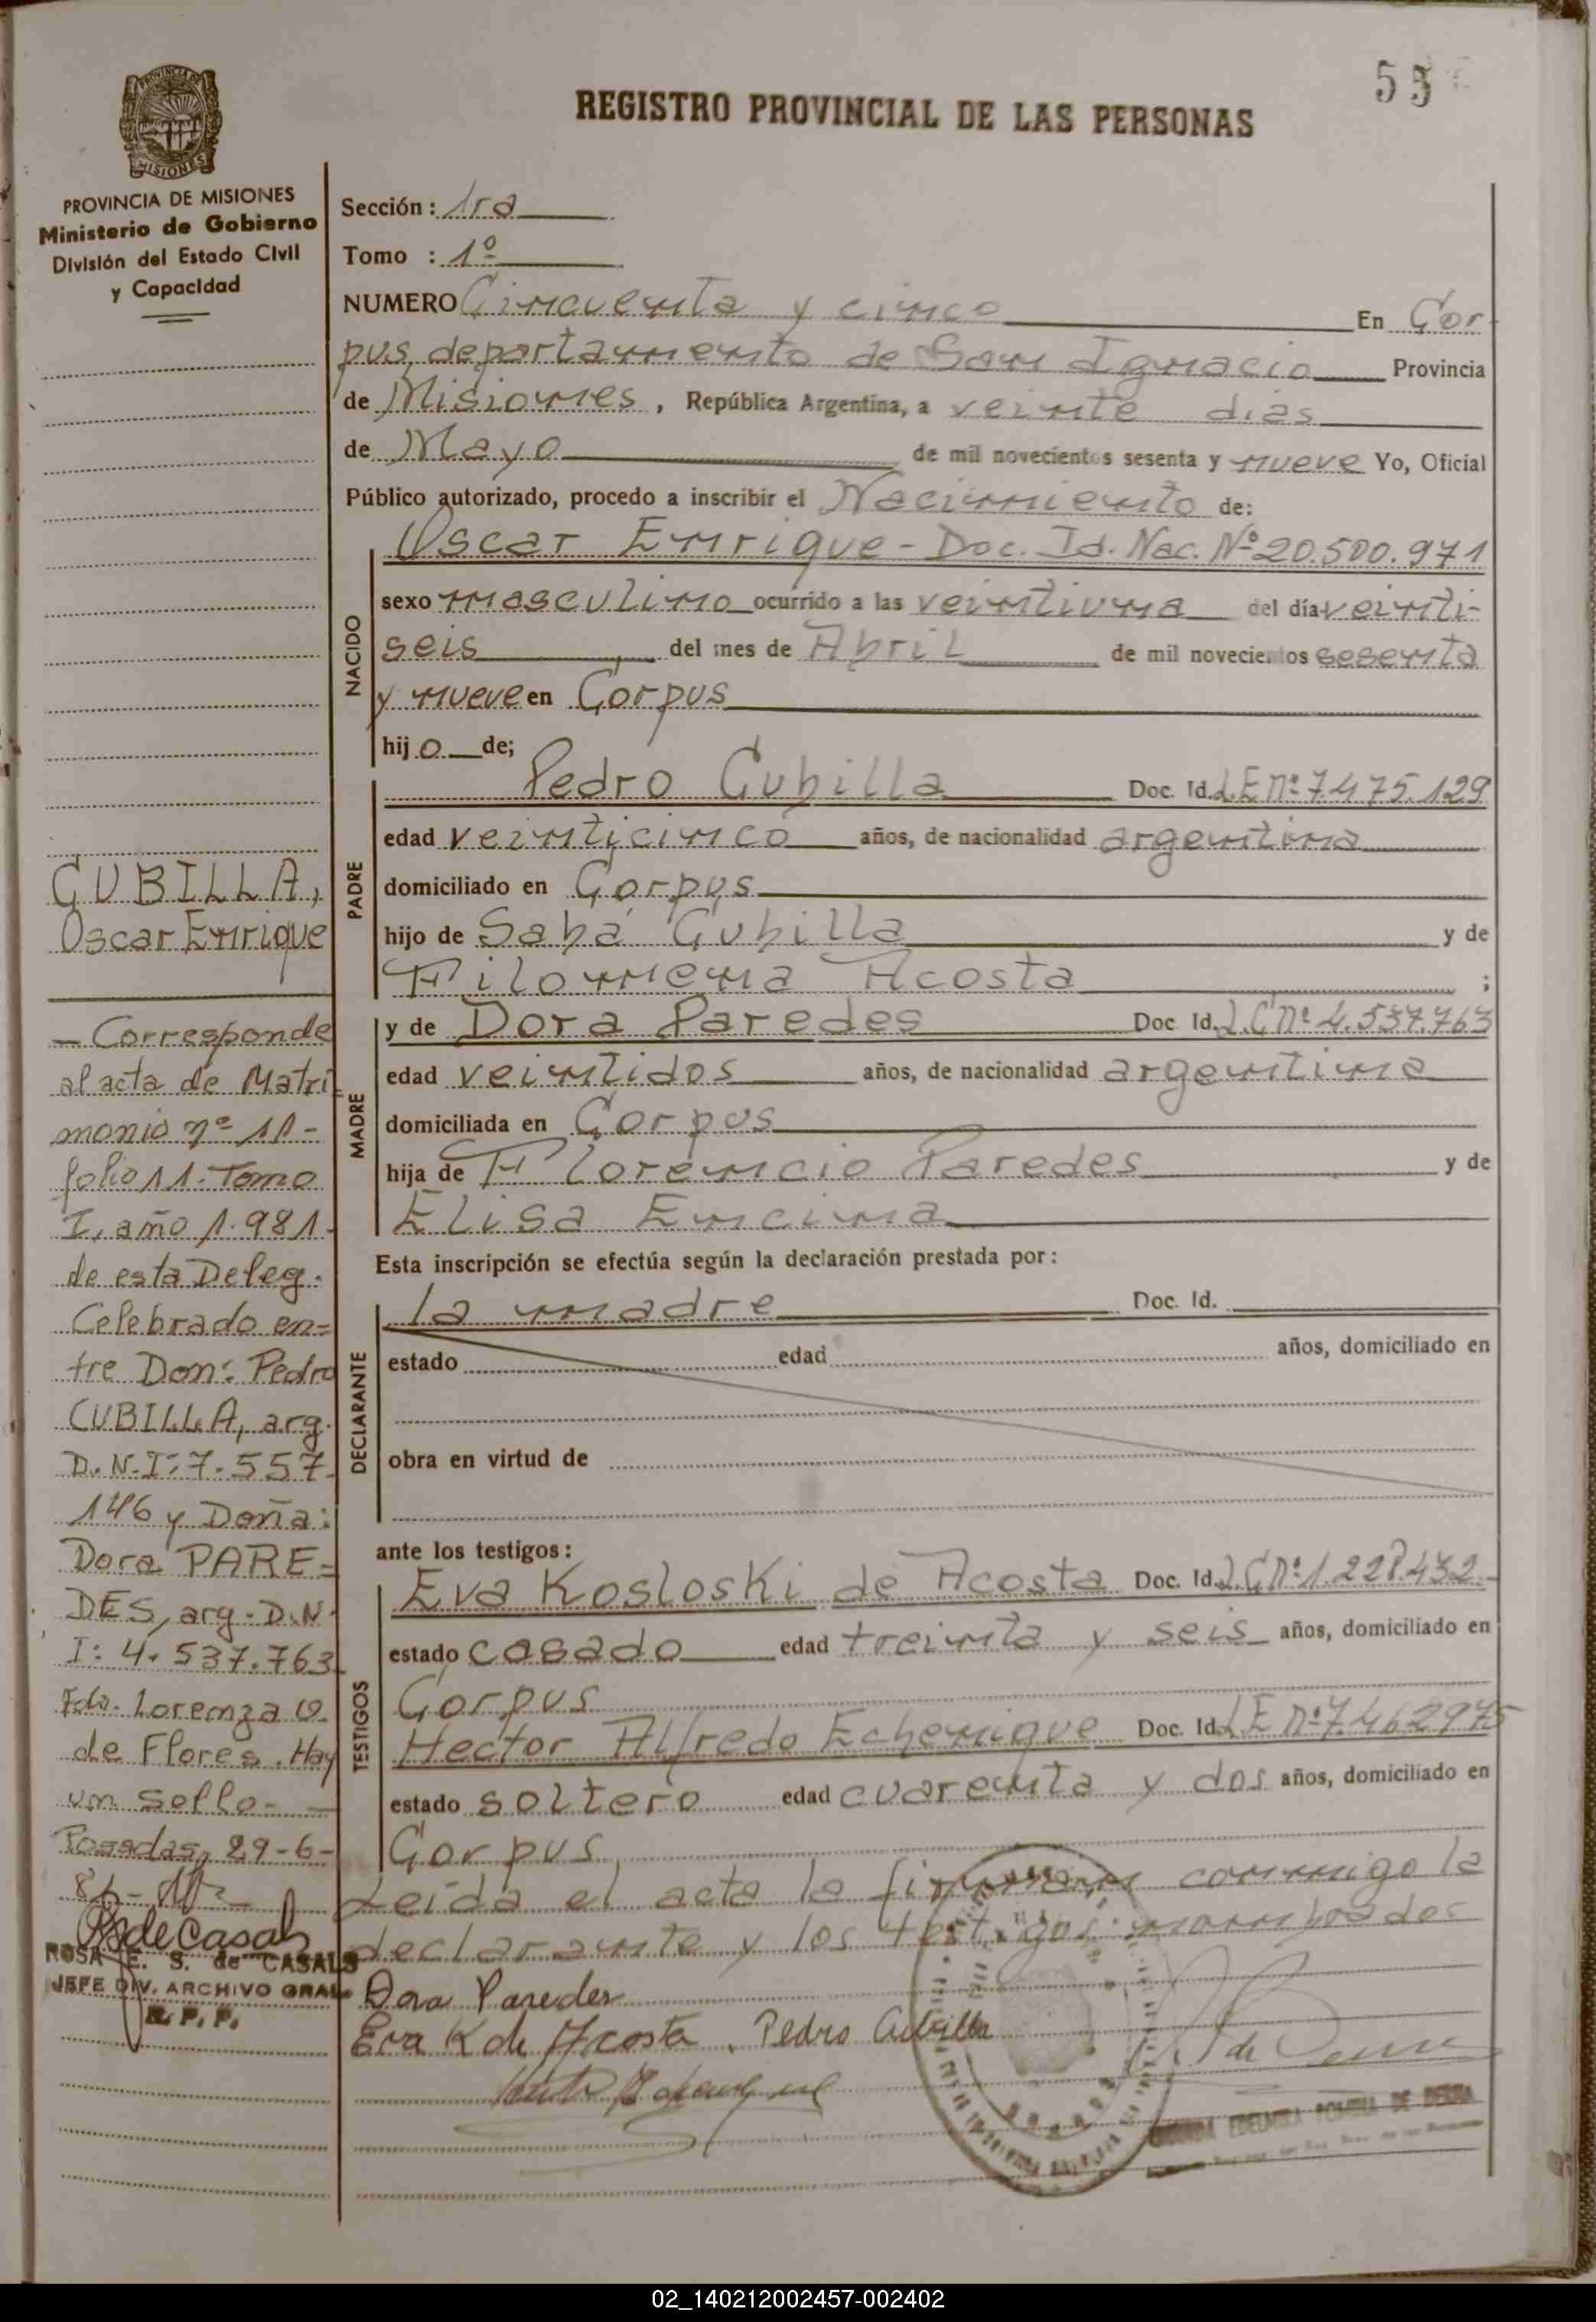 53
REGISTRO PROVINCIAL DE LAS PERSONAS
PROVINCIA DE
MISIONES
PROVINCIA DE MISIONES
Ministerio de Gobierno
División del Estado Civil
y Capacidad
CUBILLA,
Oscar Enrique
- Corresponde
al acta de Matri
monio nº 11-
folio 11. Tomo
I, año 1.981.
de esta Deleg.
Celebrado en=
tre Don: Pedro
CUBILLA, arg.
D.N.I: 7.557.
146 y Doña:
Dora PARE=
DES, arg. D.N.
I: 4.537.763
Fdo. Lorenza
de Flores. Hay
un sello-
Posadas, 29-6-
RSdeCasals
ROSA E. S. de CASALS
JEFE DIV. ARCHIVO GRAL.
R. P. P.
Sección: 1ra
Tomo : 1º
NUMERO Cincuenta y cinco En Cor
pus departamento de San Ignacio Provincia
de Misiones, República Argentina, a veinte dias
de Mayo de mil novecientos sesenta y nueve Yo, Oficial
Público autorizado, procedo a inscribir el Nacimiento de:
Oscar Enrique - Doc. Id. Nac. Nº 20.500.971
NACIDO
sexo masculino ocurrido a las veintiuna del día veinti-
seis del mes de Abril de mil novecientos sesenta
y nueve en Corpus
hijo de;
PADRE
Pedro Cubilla Doc. Id. L.E nº 7.475.129
edad veinticinco años, de nacionalidad argentina
domiciliado en Corpus
hijo de Sabá Cubilla y de
Filomena Acosta ;
MADRE
y de Dora Paredes Doc Id. L.C nº 4.537.763
edad veintidos años, de nacionalidad argentina
domiciliada en Corpus
hija de Florencio Paredes y de
Elisa Encina
Esta inscripción se efectúa según la declaración prestada por:
DECLARANTE
la madre Doc. Id.
estado edad años, domiciliado en
obra en virtud de
ante los testigos:
TESTIGOS
Eva Kosloski de Acosta Doc. Id. L.C nº 1.228.432.-
estado casado edad treinta y seis años, domiciliado en
Corpus
Hector Alfredo Echenique Doc. Id. L E nº 7.462975
estado soltero edad cuarenta y dos años, domiciliado en
Corpus
Leida el acta la firman conmigo la
declarante y los testigos nombrados
Dora Paredes
Eva K de Acosta. Pedro Cubilla
02_140212002457-002402